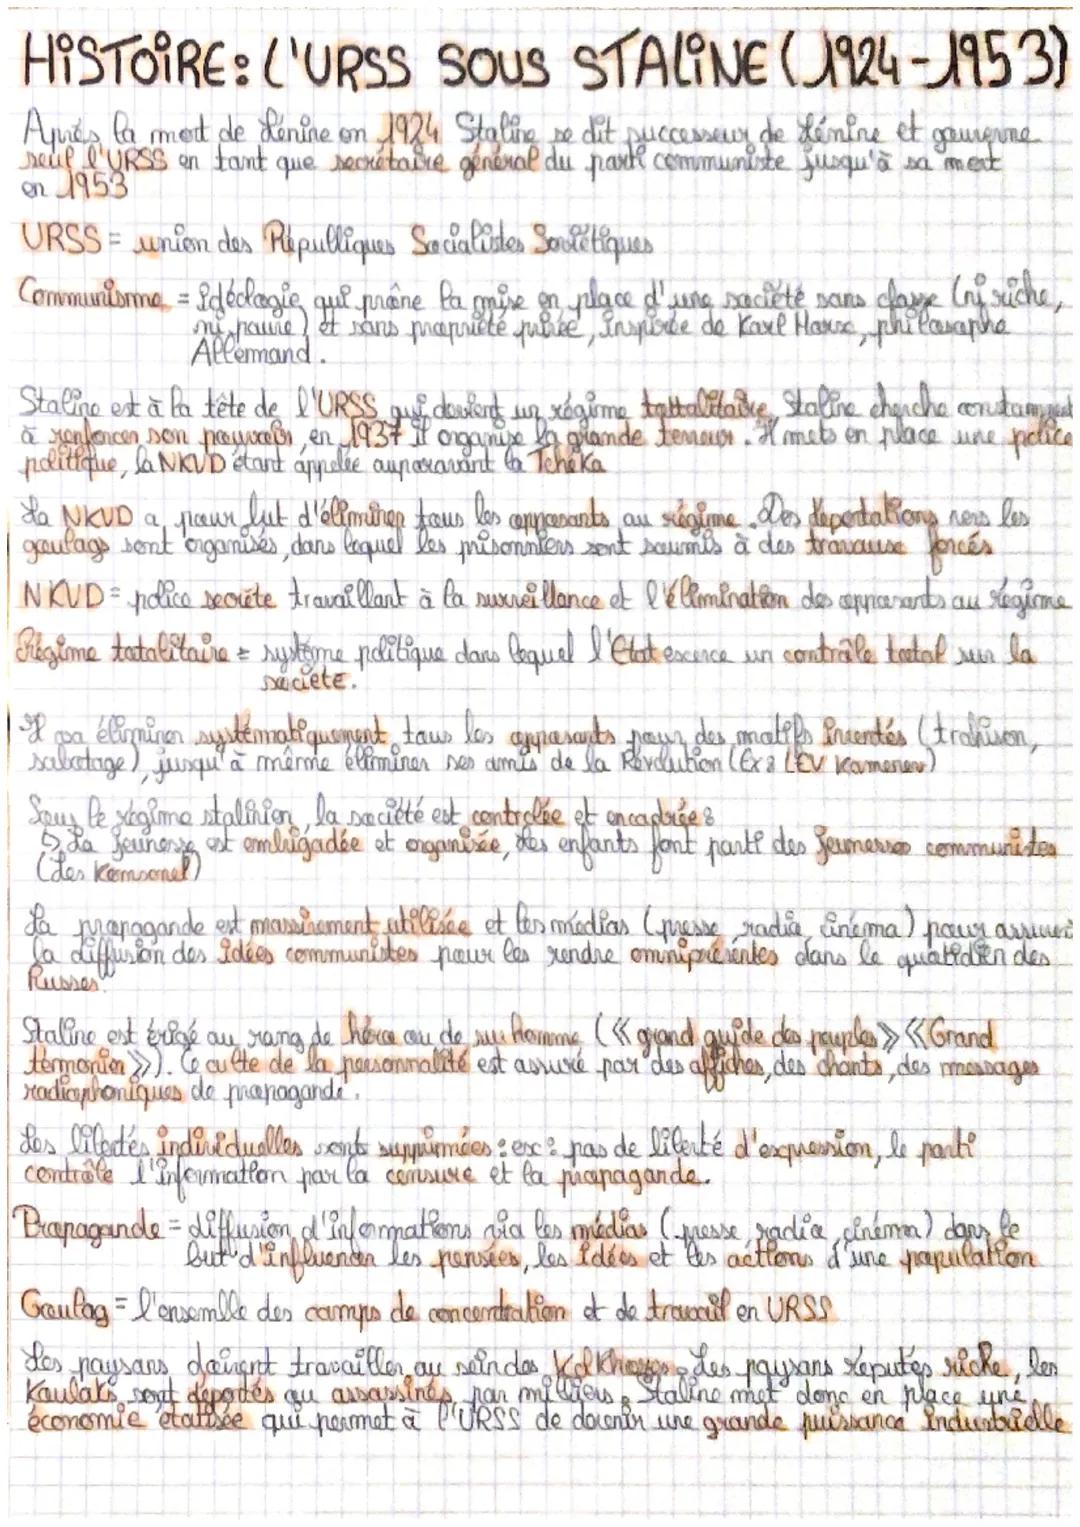 HiSTOiRE: L'URSS SOUS STALiNE (1924-1953)
Après la mort de Lénine en 1924 Staline se dit successeur de Lénine et gouverne
seul l'URSS en tant que secrétaire général du parti communiste jusqu'à sa mort
en 1953
URSS = union des Républiques Socialistes Soviétiques
Communisme = idéologie qui prône la mise en place d'une société sans classe (ni riche,
ni pauvre) et sans propriété privée, inspirée de Karl Marx, philosophe
Allemand.
Staline est à la tête de l'URSS qui devient un régime tottalitaire, Staline cherche constamment
à renforcer son pouvoir, en 1937 il organise la grande terreur. Il mets en place une police
politique, la NKVD étant appelée auparavant la Tchéka
La NKVD a pour but d'éliminer tous les opposants au régime. Des déportations vers les
goulags sont organisés, dans lequel les prisonniers sont soumis à des travaux forcés
NKVD = police secrète travaillant à la surveillance et l'élimination des opposants au régime
Régime totalitaire = système politique dans lequel l'Etat exerce un contrôle total sur la
société.
Il va éliminer systématiquement tous les opposants pour des motifs inventés (trahison,
sabotage), jusqu'à même éliminer ses amis de la Révolution (Ex: LEV Kamenev)
Sous le régime stalinien, la société est controlée et encadrée:
↳ La jeunesse est embrigadée et organisée, les enfants font parti des Jeunesses communistes
(Les Komsomol)
La propagande est massivement utilisée et les médias (presse, radio, cinéma) pour assurer
la diffusion des idées communistes pour les rendre omniprésentes dans le quotidien des
Russes.
Staline est érigé au rang de héros ou de surhomme (« grand guide des peuples » « Grand
termonier »). Ce culte de la personnalité est assuré par des affiches, des chants, des messages
radiophoniques de propagande.
Les libertés individuelles sont supprimées: ex: pas de liberté d'expression, le parti
contrôle l'information par la censure et la propagande.
Propagande = diffusion d'informations via les médias (presse, radio, cinéma) dans le
but d'influencer les pensées, les idées et les actions d'une population
Goulag = l'ensemble des camps de concentration et de travail en URSS
Les paysans doivent travailler au sein des Kolkhozes. Les paysans réputés riche, les
Koulaks sont déportés ou assassinés par milliers. Staline met donc en place une
économie étatisée qui permet à l'URSS de devenir une grande puissance industrielle